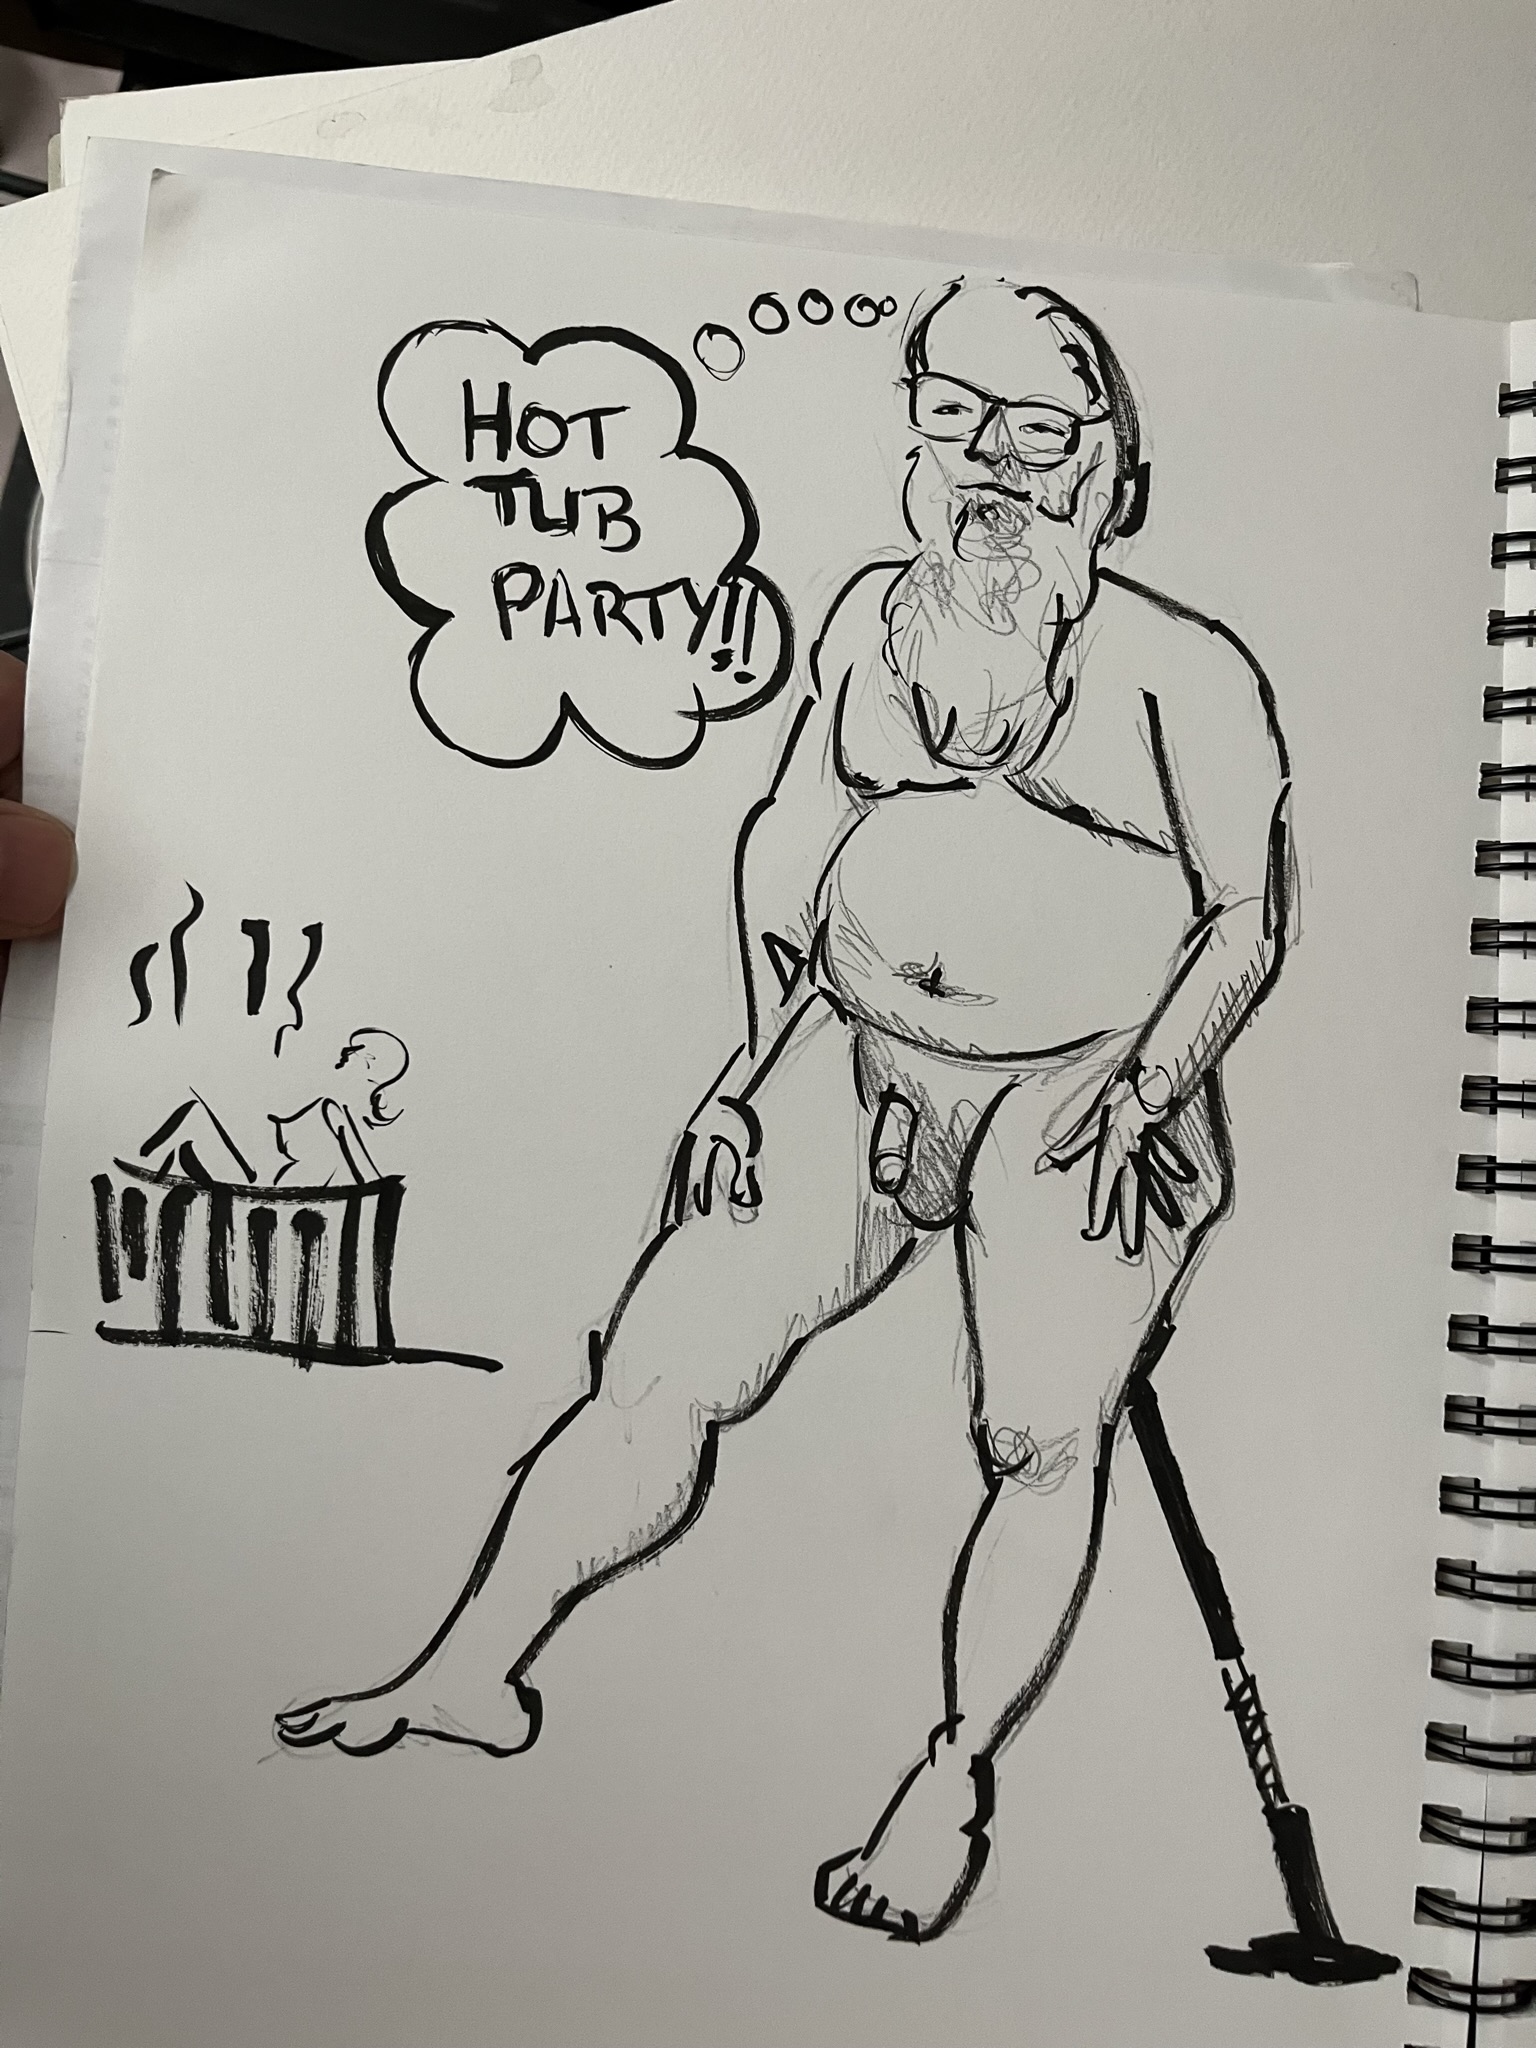 HOT
TUB
PARTY!!